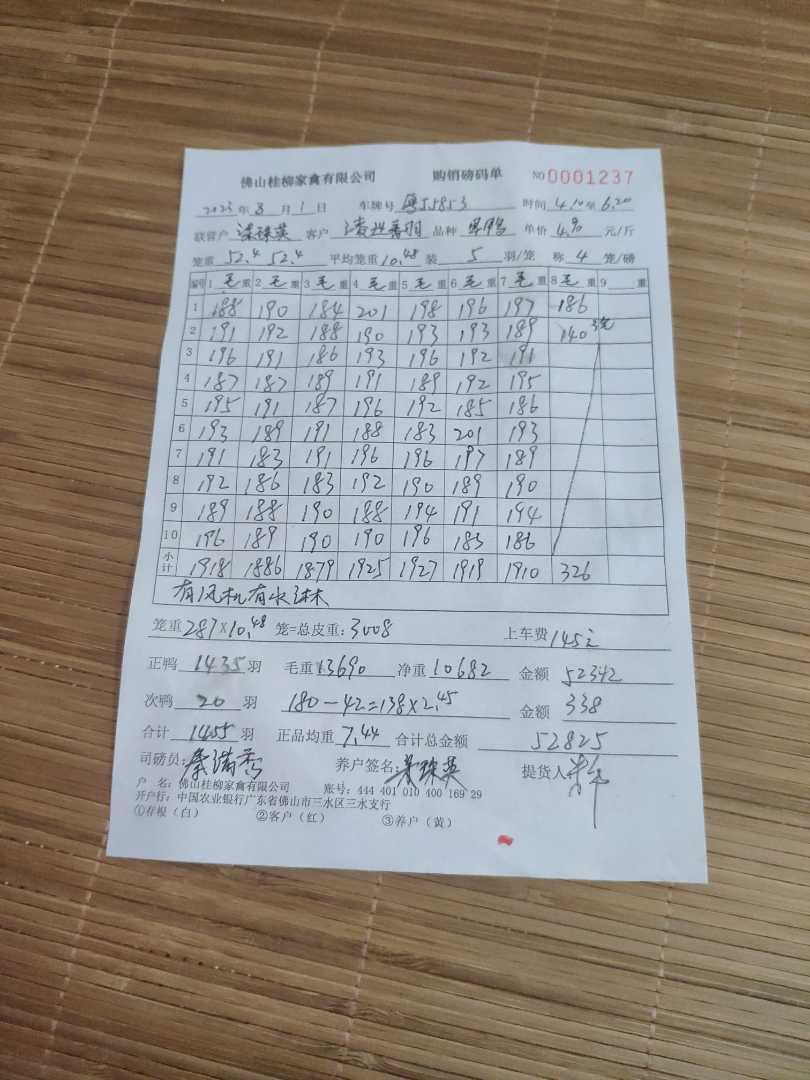 佛山桂柳家禽有限公司 购销磅码单 NO 0001237
2023年8月1日 车牌号 粤J5853 时间 4.10至6.20
联营户 客户 品种 单价 4.90 元/斤
笼重 52.4 52.4 平均笼重 10.48 装 5 羽/笼 称 4 笼/磅
编号 1 毛 重 2 毛 重 3 毛 重 4 毛 重 5 毛 重 6 毛 重 7 毛 重 8 毛 重 9 重
1 188 190 184 201 198 196 197 186
2 191 192 188 190 193 193 189 140 3笼
3 196 191 186 193 196 192 191
4 187 187 189 191 189 192 195
5 195 191 187 196 192 185 186
6 193 189 191 188 183 201 193
7 191 183 191 196 196 197 189
8 192 186 183 192 190 189 190
9 189 188 190 188 194 191 194
10 196 189 190 190 196 183 186
小计 1918 1886 1879 1925 1927 1919 1910 326
有风机有水淋
笼重 287×10.48 笼=总皮重: 3008 上车费 145元
正鸭 1435 羽 毛重 13690 净重 10682 金额 52342
次鸭 20 羽 180-42=138×2.45 金额 338
合计 1455 羽 正品均重 7.44 合计总金额 52825
司磅员: 养户签名: 提货人
户 名: 佛山桂柳家禽有限公司 账号: 444 401 010 400 169 29
开户行: 中国农业银行广东省佛山市三水区三水支行
①存根(白) ②客户(红) ③养户(黄)